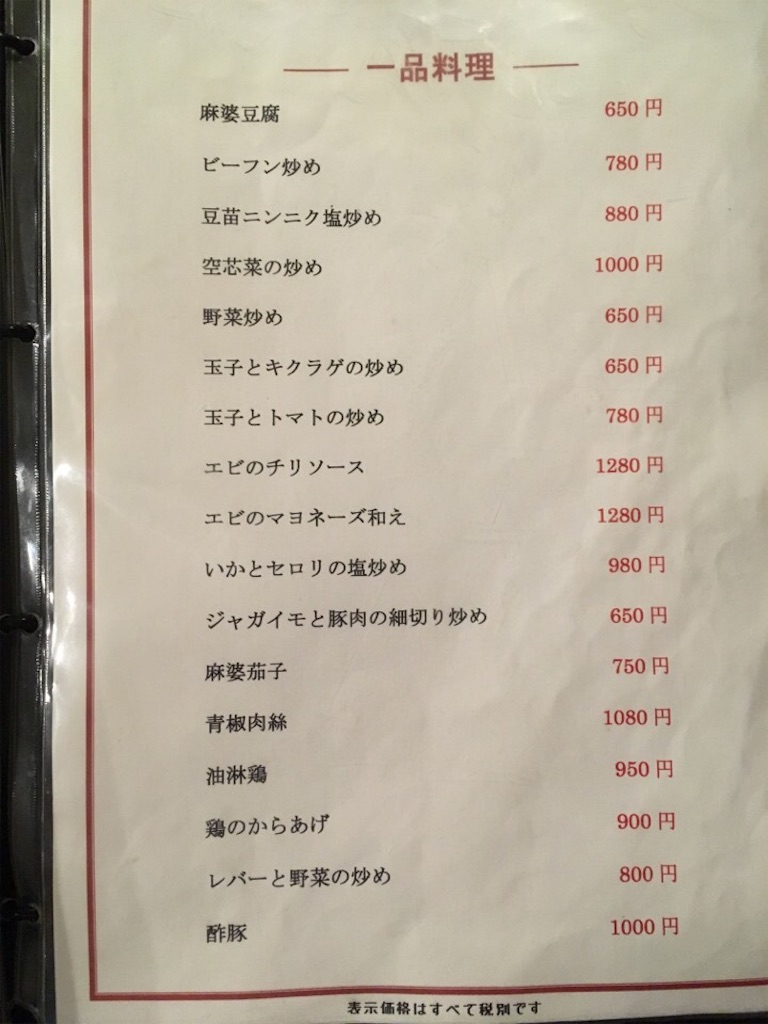 一品料理
麻婆豆腐 650円
ビーフン炒め 780円
豆苗ニンニク塩炒め 880円
空芯菜の炒め 1000円
野菜炒め 650円
玉子とキクラゲの炒め 650円
玉子とトマトの炒め 780円
エビのチリソース 1280円
エビのマヨネーズ和え 1280円
いかとセロリの塩炒め 980円
ジャガイモと豚肉の細切り炒め 650円
麻婆茄子 750円
青椒肉絲 1080円
油淋鶏 950円
鶏のからあげ 900円
レバーと野菜の炒め 800円
酢豚 1000円
表示価格はすべて税別です